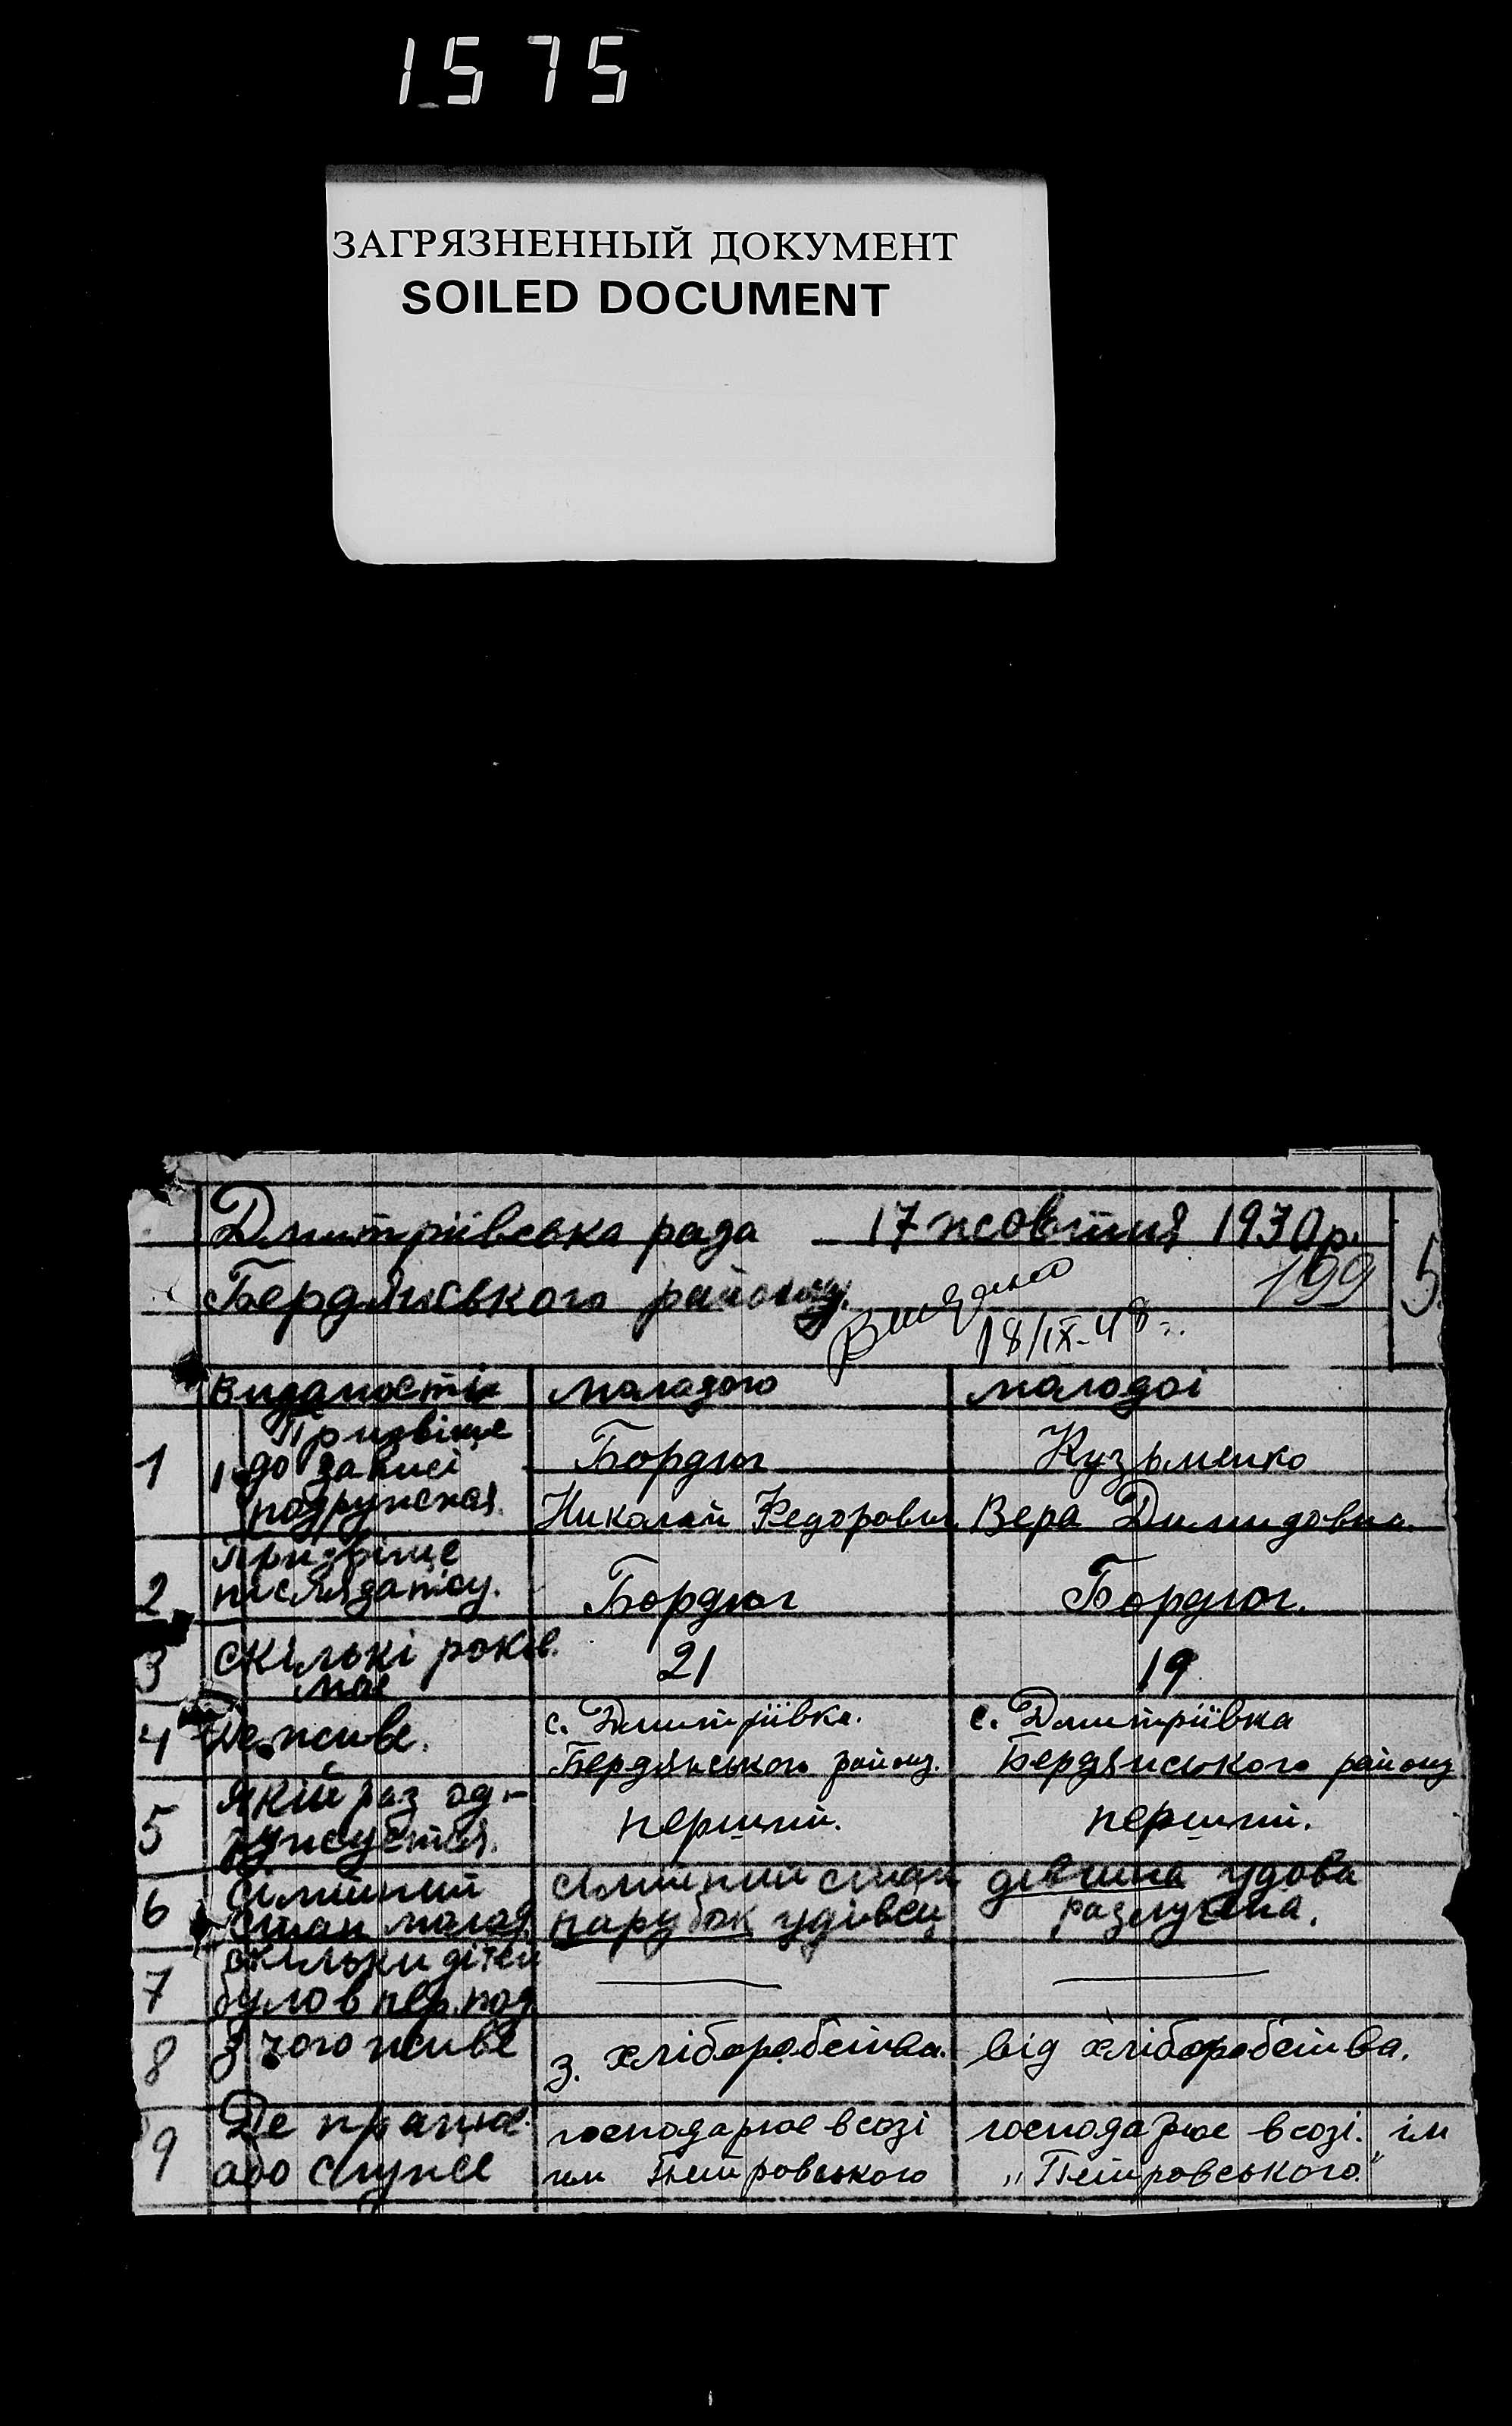 1575
ЗАГРЯЗНЕННЫЙ ДОКУМЕНТ
SOILED DOCUMENT
Дмитріївська рада 17 жовтня 1930 р. 5
Бердянського району. 199
18/IX-48 г.
Видамості молодого молодої
1 Призвіще
до записі Бордюг Кузьменко
подружская. Николай Федорович Вера Димидовна.
Призвіще
2 після запісу. Бордюг Бордюг.
3 скількі років. 21 19
має
4 Де живе. с. Дмитріївка. с. Дмитріївка
Бердянського району. Бердянського району
5 Який раз од- перший. перший.
ружується.
6 сімійний сімійний стан дівчина удова
стан молод. парубок удівець разлучена.
7 скільки дітей
було в пер. под.
8 З чого живе з. хліборобства. від хліборобства.
9 Де працює господарює в созі господарює в созі. ім
або служе им Петровського „Петровського"